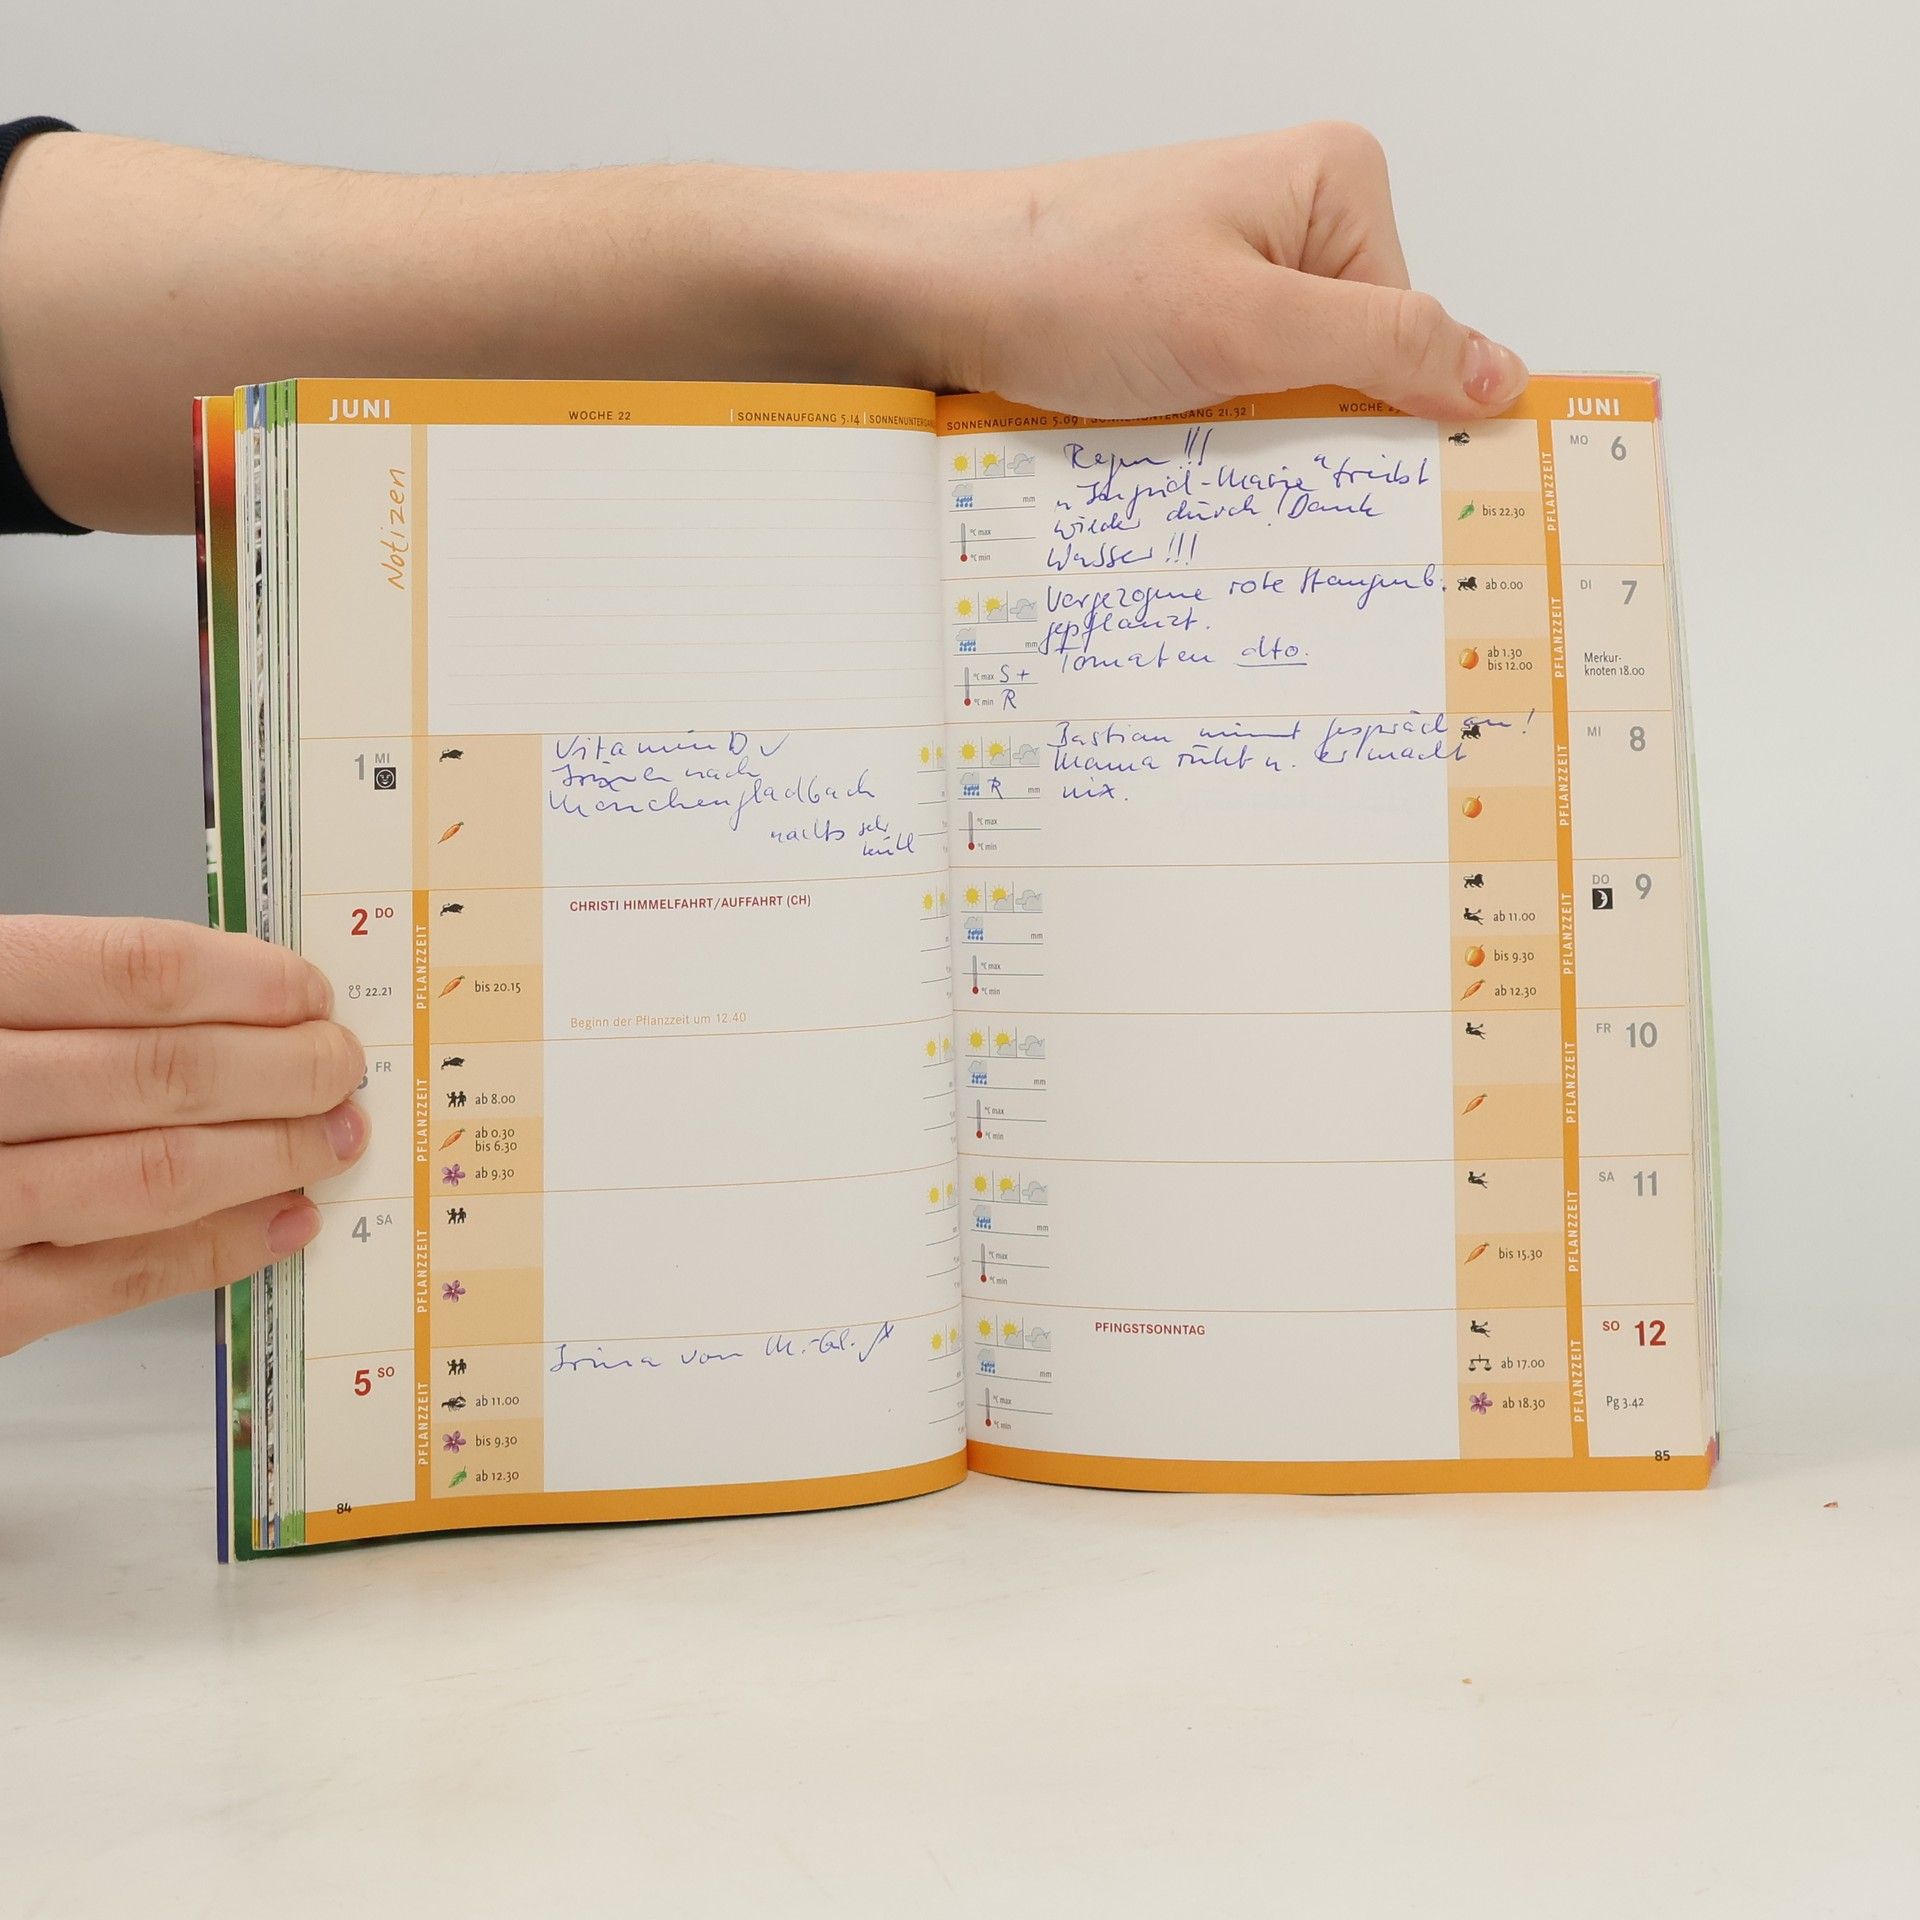 JUNI
WOCHE 22
SONNENAUFGANG 5.14
Notizen
1 MI
Vitamin D ✓
nach
Mönchengladbach
nachts sehr
kühl
2 DO
PFLANZZEIT
22.21
bis 20.15
CHRISTI HIMMELFAHRT/AUFFAHRT (CH)
Beginn der Pflanzzeit um 12.40
FR
PFLANZZEIT
ab 8.00
ab 0.30
bis 6.30
ab 9.30
4 SA
PFLANZZEIT
5 SO
PFLANZZEIT
ab 11.00
bis 9.30
ab 12.30
Irina von M.-Gl.
84
SONNENAUFGANG 5.09
SONNENUNTERGANG 21.32
WOCHE
JUNI
Regen!!!
"Ingrid-Marie" treibt
wieder durch! Dank
Wasser!!!
mm
°C max
°C min
bis 22.30
PFLANZZEIT
MO 6
Vorgezogene rote Stangenb.
gepflanzt.
Tomaten dto.
mm
°C max S +
°C min R
ab 0.00
ab 1.30
bis 12.00
PFLANZZEIT
DI 7
Merkur-
knoten 18.00
Bastian nimmt Gespräch an!
Mama ruht u. er macht
nix.
R mm
°C max
°C min
PFLANZZEIT
MI 8
mm
°C max
°C min
ab 11.00
bis 9.30
ab 12.30
PFLANZZEIT
DO 9
mm
°C max
°C min
PFLANZZEIT
FR 10
mm
°C max
°C min
bis 15.30
PFLANZZEIT
SA 11
PFINGSTSONNTAG
mm
°C max
°C min
ab 17.00
ab 18.30
PFLANZZEIT
SO 12
Pg 3.42
85